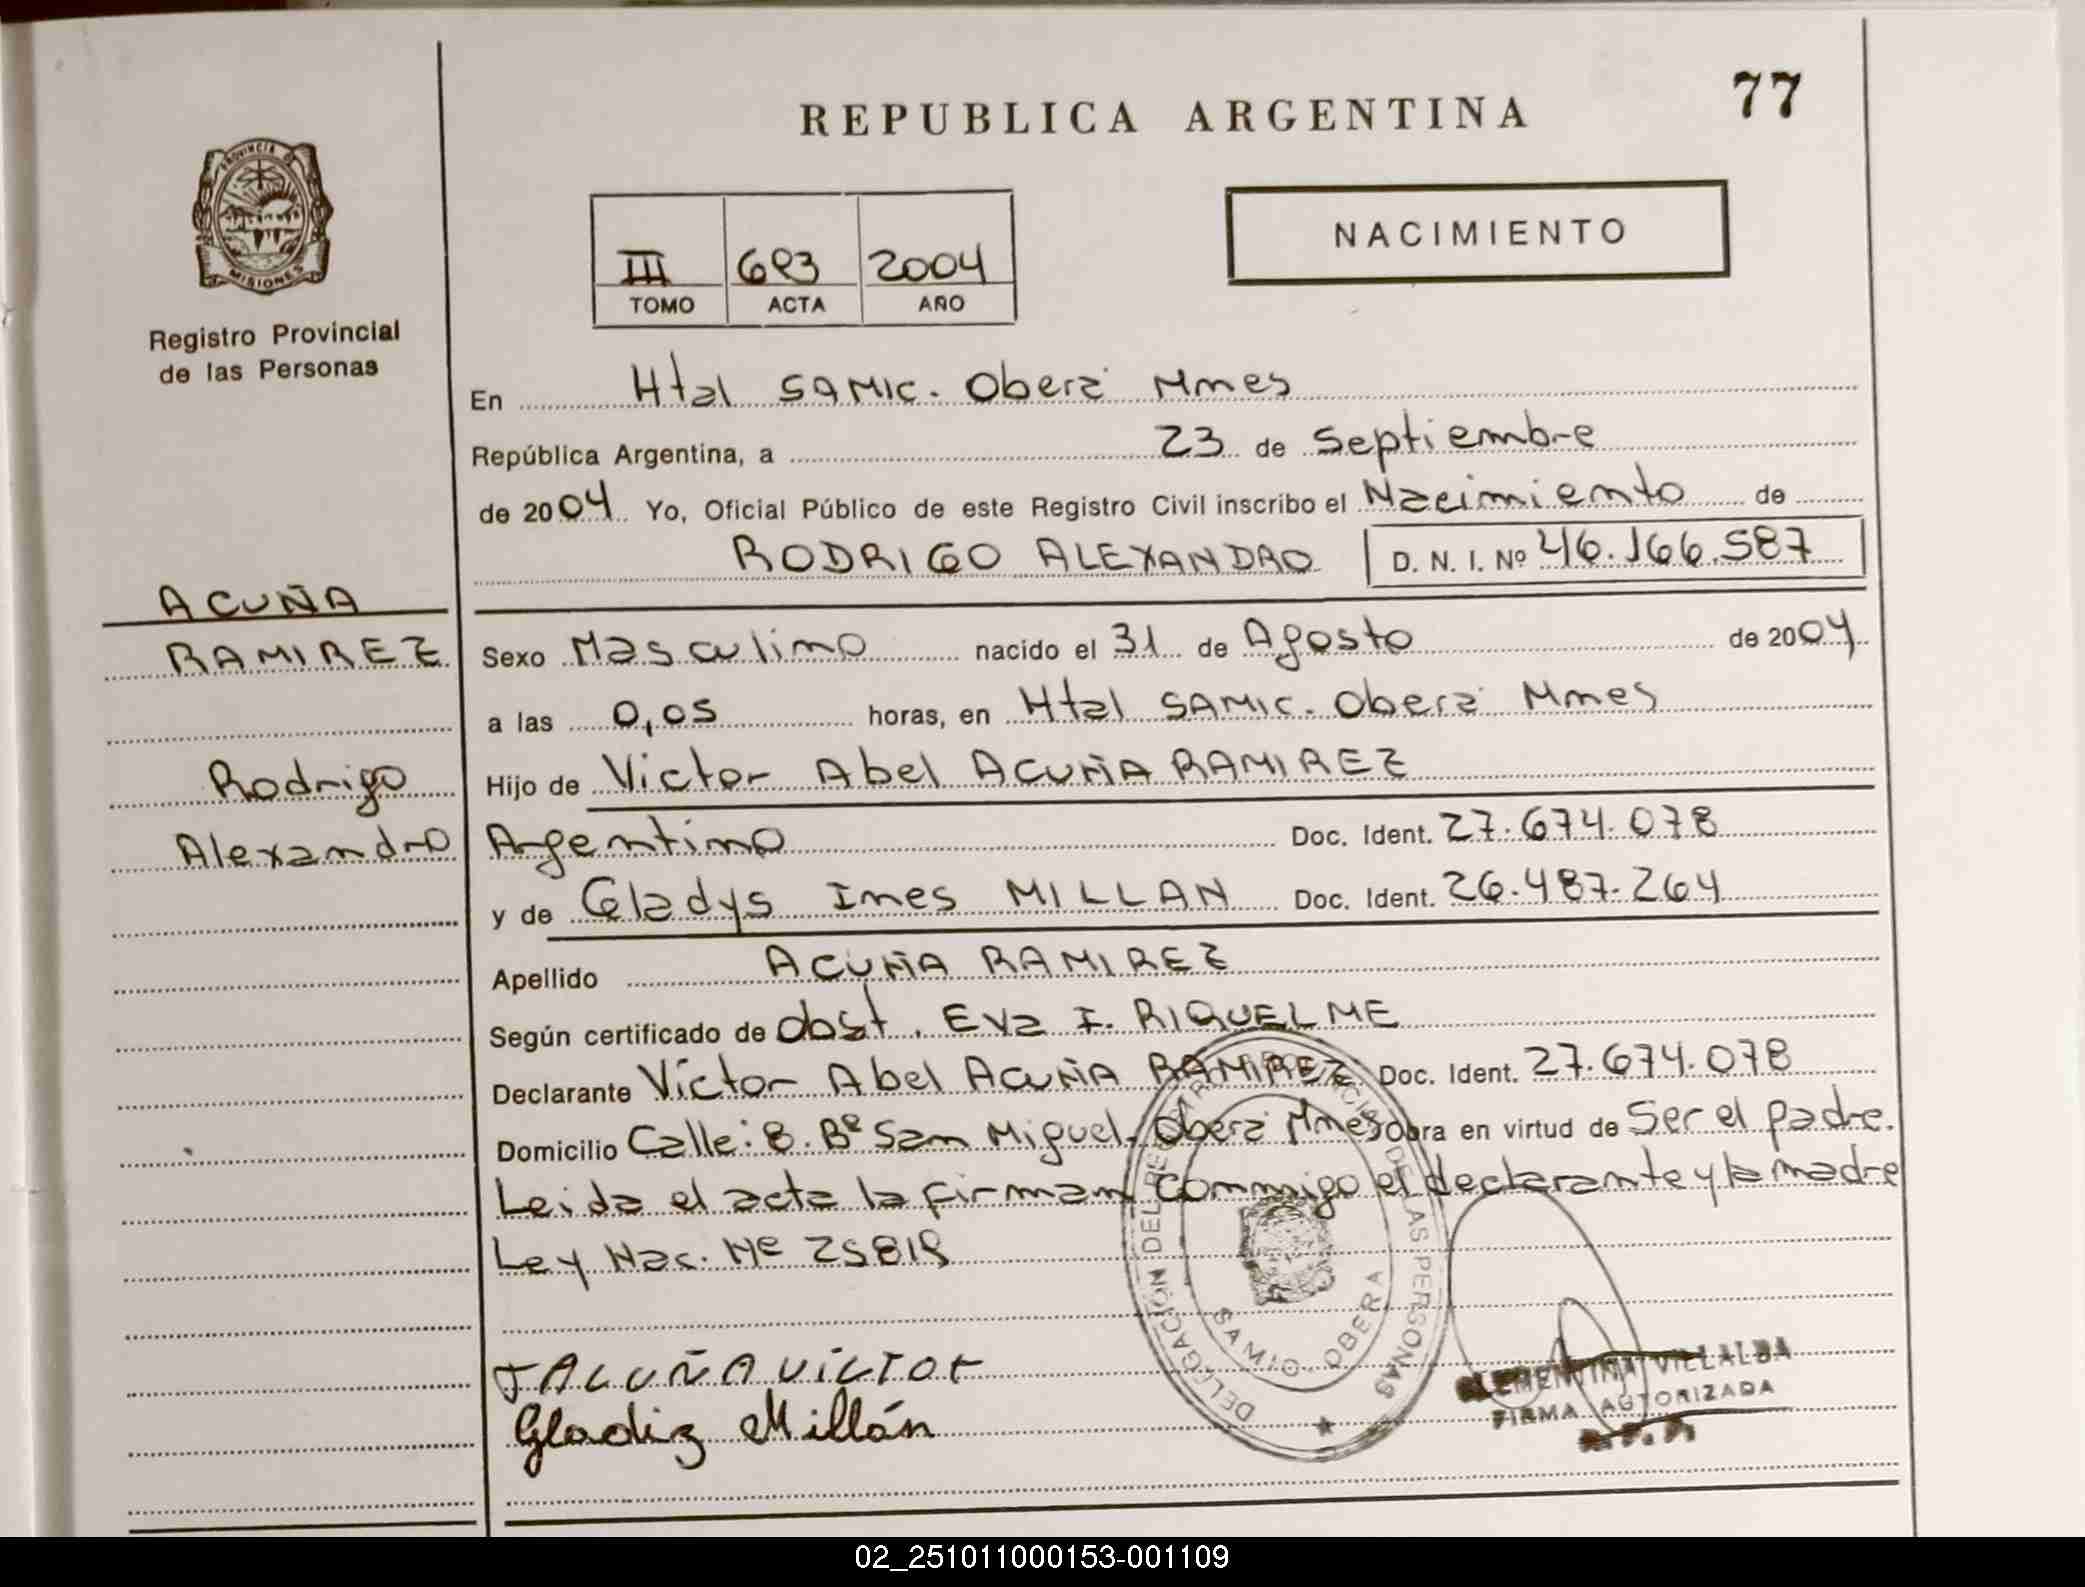 REPUBLICA ARGENTINA
77
PROVINCIA DE
MISIONES
Registro Provincial
de las Personas
NACIMIENTO
III 693 2004
TOMO ACTA AÑO
En Htal SAMIC. Oberá Mnes
República Argentina, a 23 de Septiembre
de 2004 Yo, Oficial Público de este Registro Civil inscribo el Nacimiento de
RODRIGO ALEXANDRO D. N. I. Nº 46.166.587
ACUÑA
RAMIREZ
Rodrigo
Alexandro
Sexo Masculino nacido el 31 de Agosto de 2004
a las 0,05 horas, en Htal SAMIC. Oberá Mnes
Hijo de Victor Abel ACUÑA RAMIREZ
Argentino Doc. Ident. 27.674.078
y de Gladys Ines MILLAN Doc. Ident. 26.487.264
Apellido ACUÑA RAMIREZ
Según certificado de Obst. Eva I. RIQUELME
Declarante Victor Abel ACUÑA RAMIREZ Doc. Ident. 27.674.078
Domicilio Calle: 8. Bº San Miguel. Oberá Mnes Obra en virtud de Ser el padre.
Leida el acta la firman conmigo el declarante y la madre
Ley Nac. Nº 25819
ACUÑA VICTOR
Gladiz Millán
DELEGACION DEL REGISTRO PROVINCIAL DE LAS PERSONAS
SAMIC - OBERA
CLEMENTINA VILLALBA
FIRMA AUTORIZADA
R. P. P.
02_251011000153-001109